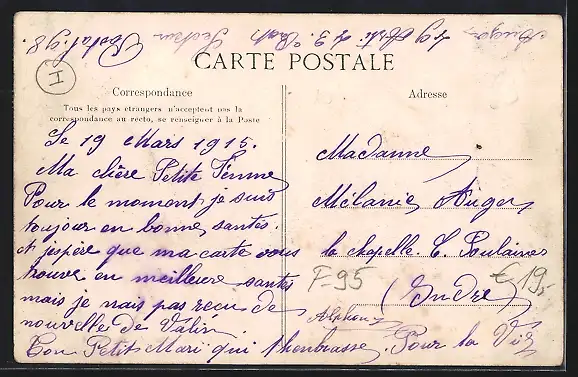 Auger 49 Arti 43 Bat Section Postal 98.
H
CARTE POSTALE
Correspondance
Tous les pays étrangers n'acceptent pas la
correspondance au recto, se renseigner à la Poste
Adresse
Le 19 Mars 1915.
Ma chère Petite Femme
Pour le momont je suis
toujour en bonne santés.
et jespère que ma carte vous
trouve en meilleure santés
mais je nais pas recu de
nouvelle de Valin
Ton Petit Mari qui thenbrasse. Pour la Vie
Madame
Mélanie Auger
la chapelle C. Poulaines
(Indre)
F-95
€ 19,-
Alphons